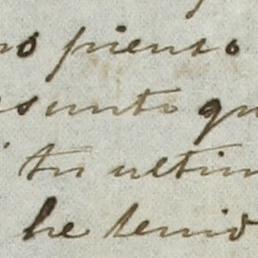 no pienso
asunto qu
tu ultim
he tenid